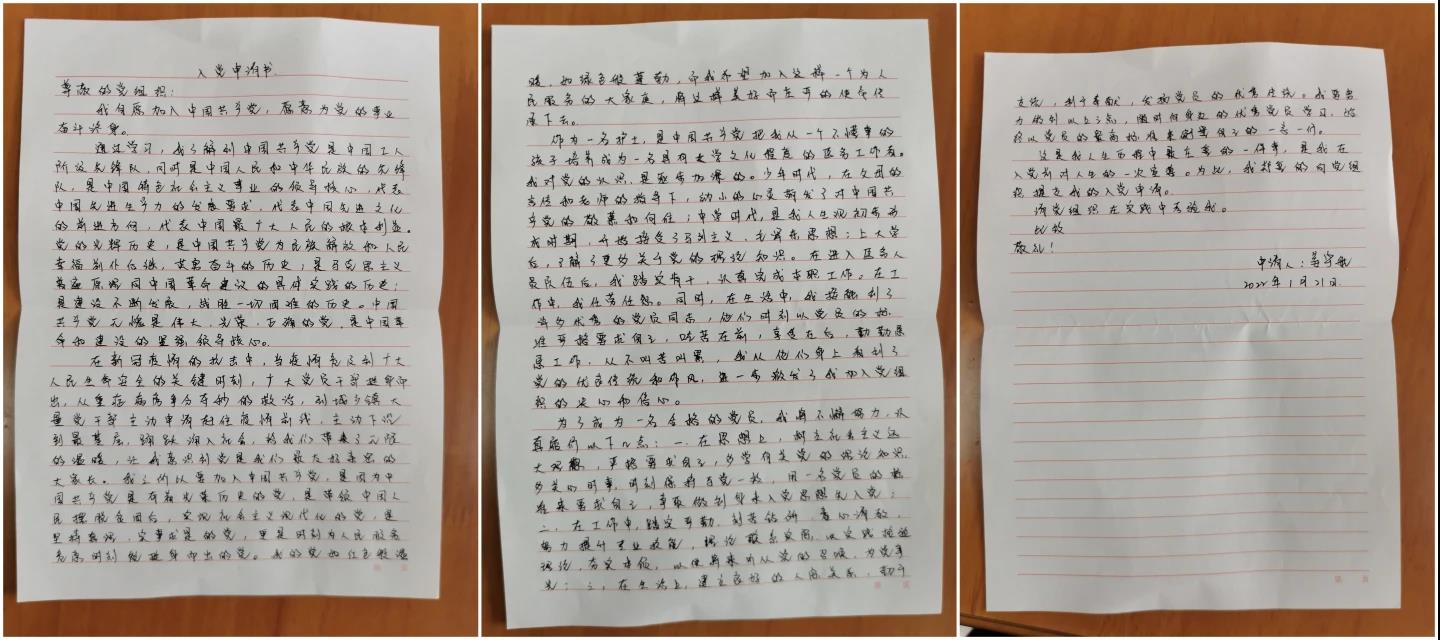 入党申请书
尊敬的党组织：
我自愿加入中国共产党，愿意为党的事业
奋斗终身。
通过学习，我了解到中国共产党是中国工人
阶级先锋队，同时是中国人民和中华民族的先锋
队，是中国特色社会主义事业的领导核心，代表
中国先进生产力的发展要求，代表中国先进文化
的前进方向，代表中国最广大人民的根本利益。
党的光辉历史，是中国共产党为民族解放和人民
幸福前仆后继，英勇奋斗的历史；是马克思主义
普遍原理同中国革命建设的具体实践的历史；
是建设不断发展，战胜一切困难的历史。中国
共产党无愧是伟大、光荣、正确的党，是中国革
命和建设的坚强领导核心。
在新冠疫情的抗击中，当疫情危及到广大
人民生命安全的关键时刻，广大党员干部挺身而
出，从重症病房争分夺秒的救治，到城乡镇大
量党干部主动申请赴往疫情前线，主动下沉
到最基层，踊跃深入社会，给我们带来了无限
的温暖，让我意识到党是我们最友好亲密的
大家长。我之所以要加入中国共产党，是因为中
国共产党是有着光荣历史的党，是带领中国人
民摆脱贫困后，实现社会主义现代化的党，是
坚持真理，实事求是的党，更是时刻为人民服务
危急时刻能挺身而出的党。我的党如红色般温
暖，如绿色般蓬勃，而我希望加入这样一个为人
民服务的大家庭，将这样美好而庄严的使命传
承下去。
作为一名护士，是中国共产党把我从一个不懂事的
孩子培养成为一名具有大学文化程度的医务工作者。
我对党的认识，是逐步加深的。少年时代，在父母的
言传和老师的指导下，幼小的心灵萌发了对中国共
产党的敬慕和向往；中学时代，是我人生观初步形
成时期，开始接受了马列主义、毛泽东思想；上大学
后，了解了更多关于党的理论知识。在进入医务人
员队伍后，我踏实肯干，认真完成本职工作。在工
作中，我任劳任怨。同时，在生活中，我接触到了
许多优秀的党员同志，他们时刻以党员的标
准严格要求自己，吃苦在前，享受在后，勤勤恳
恳工作，从不叫苦叫累，我从他们身上看到了
党的优良传统和作风，进一步激发了我加入党组
织的决心和信心。
为了成为一名合格的党员，我将不懈努力，认
真履行以下几点：一、在思想上，树立社会主义远
大理想，严格要求自己，多学有关党的理论知识，
多关心时事，时刻保持与党一致，用一名党员的标
准来要求自己，争取做到身未入党思想先入党；
二、在工作中，踏实勤勤，刻苦钻研，
努力提升专业技能，理论联系实际，以实践检验
理论，夯实本领，以便将来听从党的召唤，为党争
光；三、在生活上，建立良好的人际关系，勤于
支统，利于奉献，发扬党员的优秀传统。我要努
力做到以上三点，随时向身边的优秀党员学习，始
终以党员的最高标准来衡量自己的一言一行。
这是我人生历程中最庄严的一件事，是我在
入党前对人生的一次宣誓。为此，我郑重的向党组
织提交我的入党申请。
请党组织在实践中考验我。
此致
敬礼！
申请人：
2022年1月21日